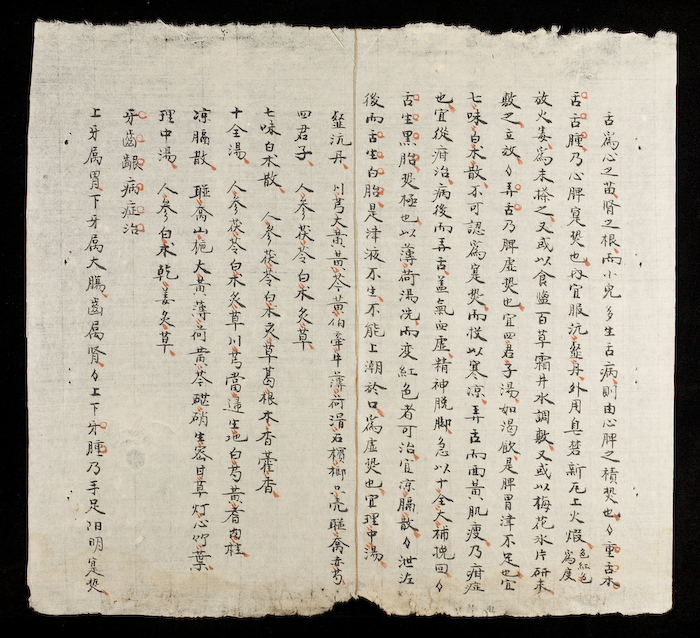 舌為心之苗腎之根而小兒多生舌病則由心脾之積熒也〻重舌木
舌舌腫乃心脾寔熒也內宜服沆瀣丹外用皂若新瓦上火煅色紅色為度
放火毒為末搽之又或以食鹽百草霜井水調敷又或以梅花氷片研末
敷之立效〻弄舌乃脾虛熒也宜四君子湯如渴飲是脾胃津不足也宜
七味白朮散不可認為寔熒而投以寒凉弄舌而面黃肌瘦乃疳症
也宜從疳治病後而弄舌盖氣血虛精神脱脚急以十全大補挽回〻
舌生黑胎熒極也以薄荷湯洗而变紅色者可治宜凉膈散〻泄泻
後而舌生白胎是津液不生不能上潮於口為虛熒也宜理中湯
瀣沆丹 川芎大黃黃芩黃伯牽牛薄荷滑石檳榔只壳聯翹赤芍
四君子 人參茯苓白朮炙草
七味白朮散 人參茯苓白朮炙草葛根木香藿香
十全湯 人參茯苓白朮炙草川芎當歸生地白芍黃耆肉桂
凉膈散 聯翹山梔大黃薄荷黃芩磋硝生密甘草灯心竹葉
理中湯 人參白朮乾姜炙草
牙齒齦病症治
上牙属胃下牙属大腸齒属腎〻上下牙腫乃手足阳明寔熒